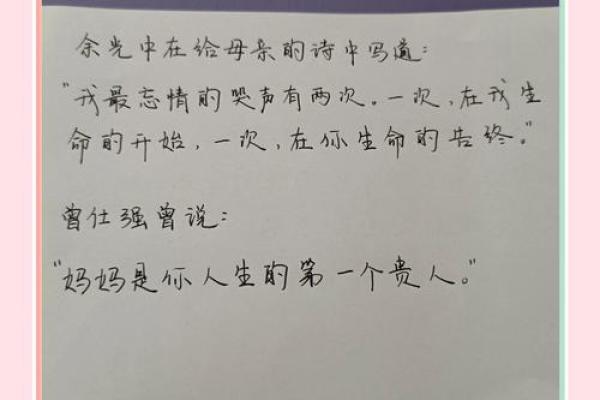 余光中在给母亲的诗中写道：
"我最忘情的哭声有两次。一次，在我生
命的开始，一次，在你生命的告终。"
曾仕强曾说：
"妈妈是你人生的第一个贵人。"